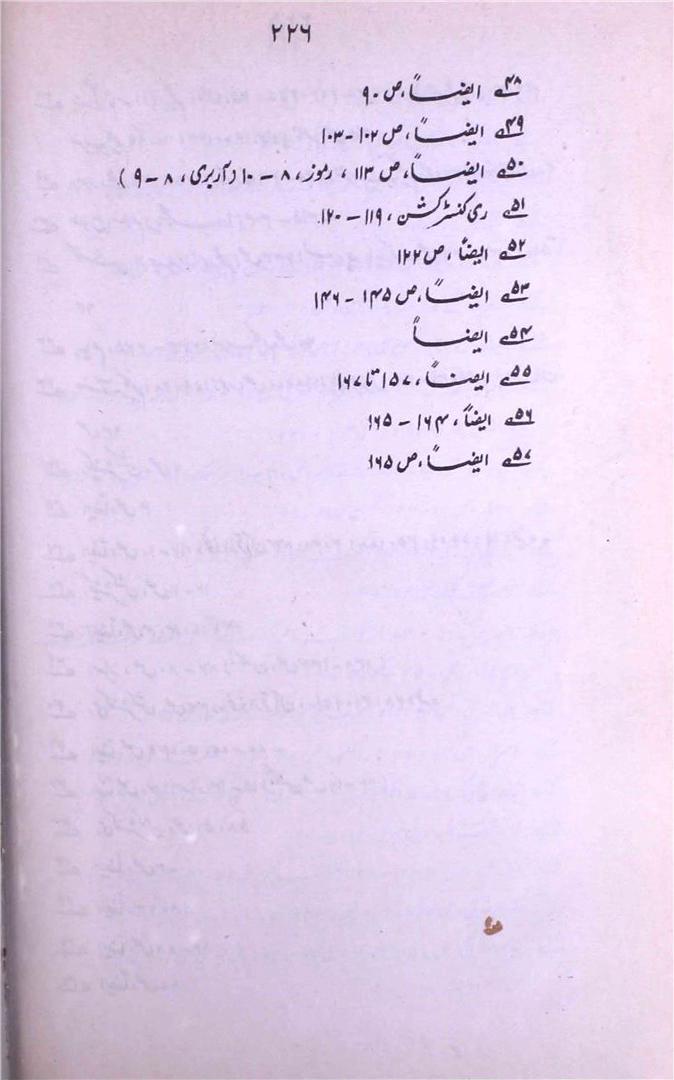 ۲۲۶
۴۸؎ ایضاً، ص ۹۰
۴۹؎ ایضاً، ص ۱۰۲ – ۱۰۳
۵۰؎ ایضاً، ص ۱۱۳ ، رموز، ۸ – ۱۰ (آربری، ۸ – ۹)
۵۱؎ ری کنسٹرکشن، ۱۱۹ – ۱۲۰
۵۲؎ ایضاً، ص ۱۲۲
۵۳؎ ایضاً، ص ۱۴۵ – ۱۴۶
۵۴؎ ایضاً
۵۵؎ ایضاً، ۱۵۷ تا ۱۶۷
۵۶؎ ایضاً، ۱۶۴ – ۱۶۵
۵۷؎ ایضاً، ص ۱۶۵